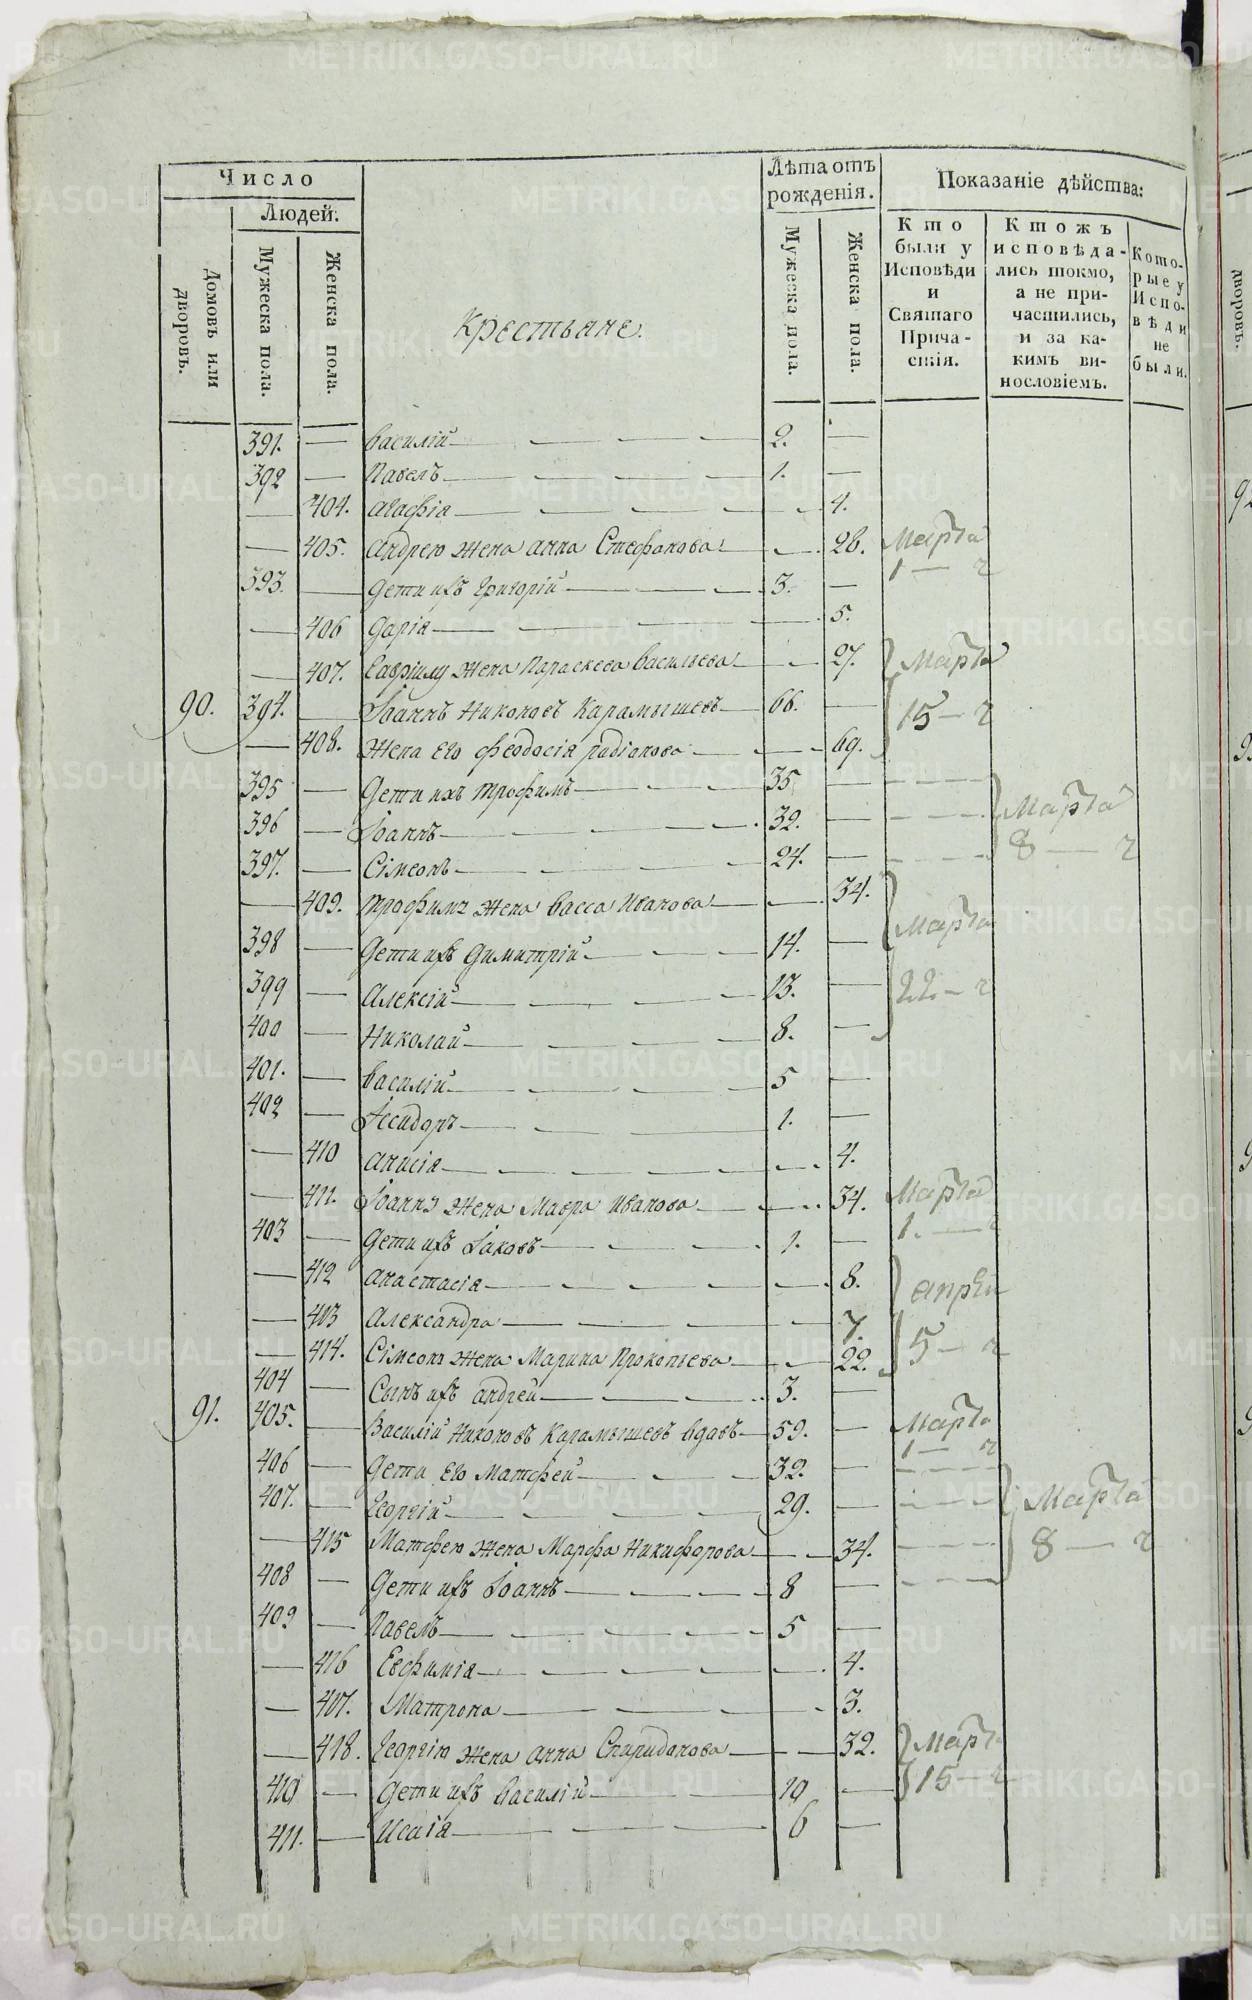 Число
Людей.
Домовъ или дворовъ.
Мужеска пола.
Женска пола.
Крестьяне.
Лѣта отъ рожденія.
Мужеска пола.
Женска пола.
Показаніе дѣйства:
Кто были у Исповѣди и Святаго Причастія.
Ктожъ исповѣдались токмо, а не причастились, и за какимъ винословіемъ.
Которые у Исповѣди не были.
391. — Василій — 2. —
392 — Павелъ — 1. —
— 404. Агафія — 4.
— 405. Андрею жена Анна Стефанова — 26. Марта
1 — ч
393. — Дети ихъ Григорій — 3. —
— 406 Дарія — 5.
— 407. Гавріилу жена Параскева Васильева — 27. Марта
90. 394. — Іоаннъ Николаев Карамышевъ — 66. — 15 — ч
— 408. Жена его Феодосія Радіанова — 69.
395 — Дети ихъ Трофимъ — 35 —
396 — Іоаннъ — 32. — Марта
397. — Сімеонъ — 24. — 8 — ч
— 409. Трофиму жена Васса Иванова — 34.
Марта
398 — Дети ихъ Димитрій — 14. —
399 — Алексій — 13. — 22 — ч
400 — Николай — 8. —
401. — Василій — 5 —
402 — Ісидоръ — 1. —
— 410 Анисія — 4.
— 411. Іоанну жена Мавра Иванова — 34. Марта
403 — Дети ихъ Іаковъ — 1. — 1. — ч
— 412 Анастасія — 8. апреля
— 413 Александра — 7.
— 414. Сімеону жена Марина Прокопьева — 22. 5 — ч
404 — Сынъ ихъ Андрей — 3. —
91. 405. — Василій Николаевъ Карамышевъ вдовъ — 59. — Марта
1 — ч
406 — Дети его Матфей — 32. —
407. — Георгій — 29. — Марта
— 415 Матфею жена Марфа Никифорова — 34. 8 — ч
408 — Дети ихъ Іоаннъ — 8 —
409 — Павелъ — 5 —
— 416 Евфимія — 4.
— 417. Матрона — 3.
— 418. Георгію жена Анна Спиридонова — 32. Марта
410 — Дети ихъ Василій — 10 — 15 — ч
411. — Исаія — 6 —
METRIKI.GASO-URAL.RU